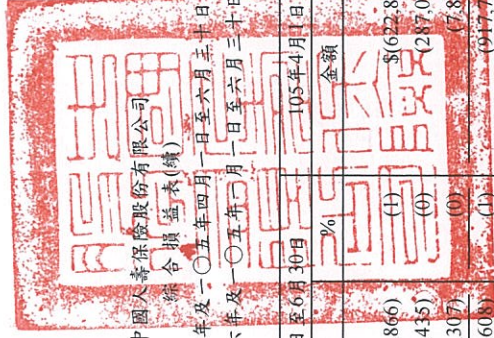 中國人壽保險股份有限公司
綜合損益表(續)
年及一○五年四月一日至六月三十日
年及一○五年一月一日至六月三十日
日至6月30日 105年4月1日
% 金額
866) (1) $(622,8
435) (0) (287,0
307) (0) (7,8
608) (1) (917,7